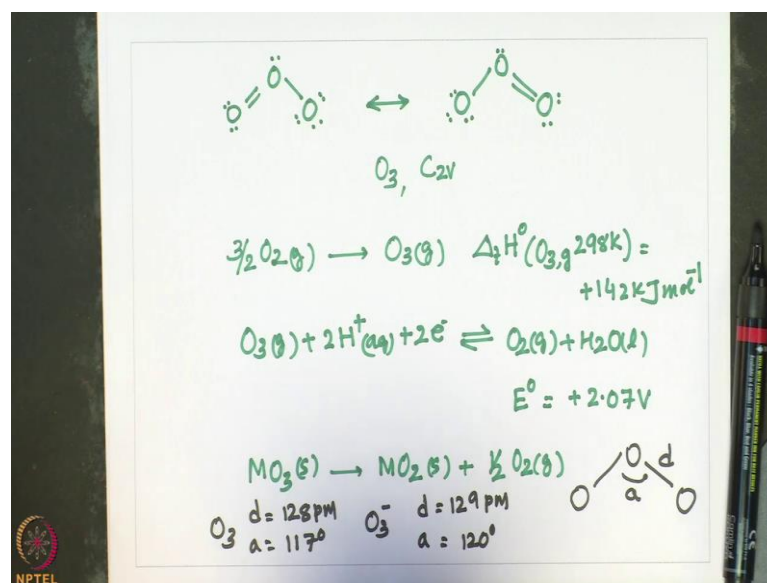 O O O ↔ O O O
O₃, C₂v
3/2 O₂(g) → O₃(g) ΔfH⁰(O₃,g 298K) =
+142 kJ mol⁻¹
O₃(g) + 2H⁺(aq) + 2e⁻ ⇌ O₂(g) + H₂O(l)
E⁰ = +2.07V
MO₃(s) → MO₂(s) + ½ O₂(g)
O₃ d = 128 pm
a = 117⁰
O₃⁻ d = 129 pm
a = 120⁰
O O O d a
NPTEL